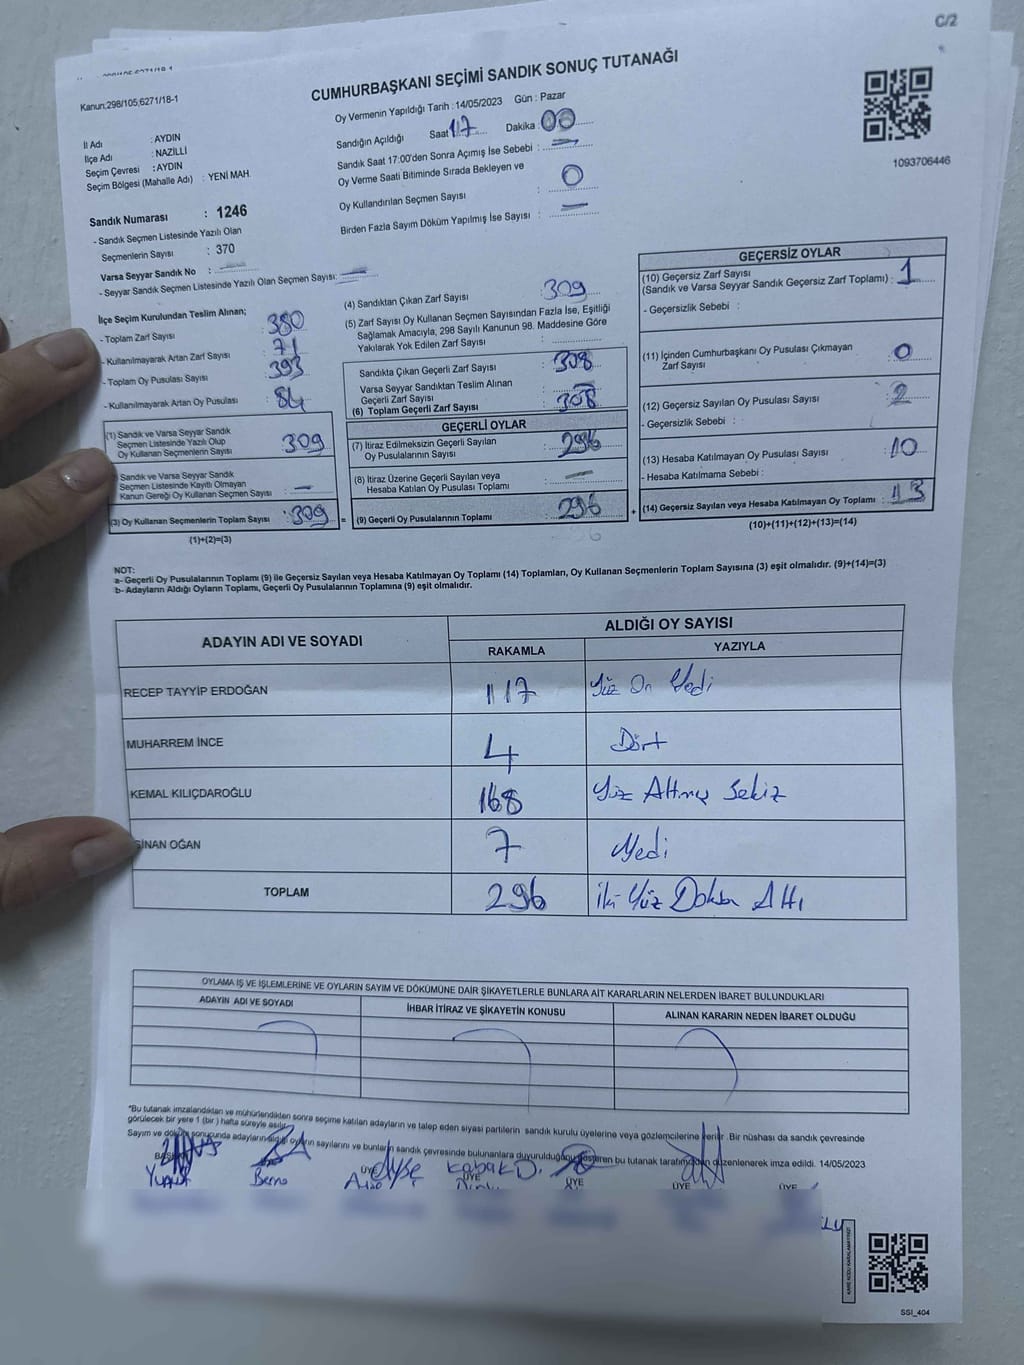 C/2
Kanun;298/105;6271/18-1
CUMHURBAŞKANI SEÇİMİ SANDIK SONUÇ TUTANAĞI
Oy Vermenin Yapıldığı Tarih : 14/05/2023 Gün : Pazar
Sandığın Açıldığı Saat 17 Dakika : 00
Sandık Saat 17:00'den Sonra Açımış İse Sebebi : —
Oy Verme Saati Bitiminde Sırada Bekleyen ve
Oy Kullandırılan Seçmen Sayısı : 0
Birden Fazla Sayım Döküm Yapılmış İse Sayısı : —
1093706446
İl Adı : AYDIN
İlçe Adı : NAZİLLİ
Seçim Çevresi : AYDIN
Seçim Bölgesi (Mahalle Adı) : YENİ MAH.
Sandık Numarası : 1246
- Sandık Seçmen Listesinde Yazılı Olan
Seçmenlerin Sayısı : 370
Varsa Seyyar Sandık No : —
- Seyyar Sandık Seçmen Listesinde Yazılı Olan Seçmen Sayısı: —
İlçe Seçim Kurulundan Teslim Alınan;
- Toplam Zarf Sayısı : 380
- Kullanılmayarak Artan Zarf Sayısı : 71
- Toplam Oy Pusulası Sayısı : 393
- Kullanılmayarak Artan Oy Pusulası : 84
(1) Sandık ve Varsa Seyyar Sandık
Seçmen Listesinde Yazılı Olup
Oy Kullanan Seçmenlerin Sayısı : 309
Sandık ve Varsa Seyyar Sandık
Seçmen Listesinde Kayıtlı Olmayan
Kanun Gereği Oy Kullanan Seçmen Sayısı : —
(3) Oy Kullanan Seçmenlerin Toplam Sayısı : 309 =
(1)+(2)=(3)
(4) Sandıktan Çıkan Zarf Sayısı : 309
(5) Zarf Sayısı Oy Kullanan Seçmen Sayısından Fazla İse, Eşitliği
Sağlamak Amacıyla, 298 Sayılı Kanunun 98. Maddesine Göre
Yakılarak Yok Edilen Zarf Sayısı :
Sandıkta Çıkan Geçerli Zarf Sayısı : 308
Varsa Seyyar Sandıktan Teslim Alınan
Geçerli Zarf Sayısı : —
(6) Toplam Geçerli Zarf Sayısı : 308
GEÇERLİ OYLAR
(7) İtiraz Edilmeksizin Geçerli Sayılan
Oy Pusulalarının Sayısı : 296
(8) İtiraz Üzerine Geçerli Sayılan veya
Hesaba Katılan Oy Pusulası Toplamı : —
(9) Geçerli Oy Pusulalarının Toplamı : 296 +
GEÇERSİZ OYLAR
(10) Geçersiz Zarf Sayısı
(Sandık ve Varsa Seyyar Sandık Geçersiz Zarf Toplamı) : 1
- Geçersizlik Sebebi :
(11) İçinden Cumhurbaşkanı Oy Pusulası Çıkmayan
Zarf Sayısı : 0
(12) Geçersiz Sayılan Oy Pusulası Sayısı : 2
- Geçersizlik Sebebi :
(13) Hesaba Katılmayan Oy Pusulası Sayısı : 10
- Hesaba Katılmama Sebebi :
(14) Geçersiz Sayılan veya Hesaba Katılmayan Oy Toplamı : 13
(10)+(11)+(12)+(13)=(14)
NOT:
a- Geçerli Oy Pusulalarının Toplamı (9) ile Geçersiz Sayılan veya Hesaba Katılmayan Oy Toplamı (14) Toplamları, Oy Kullanan Seçmenlerin Toplam Sayısına (3) eşit olmalıdır. (9)+(14)=(3)
b- Adayların Aldığı Oyların Toplamı, Geçerli Oy Pusulalarının Toplamına (9) eşit olmalıdır.
ADAYIN ADI VE SOYADI ALDIĞI OY SAYISI
RAKAMLA YAZIYLA
RECEP TAYYİP ERDOĞAN 117 Yüz On Yedi
MUHARREM İNCE 4 Dört
KEMAL KILIÇDAROĞLU 168 Yüz Altmış Sekiz
SİNAN OĞAN 7 Yedi
TOPLAM 296 İki Yüz Doksan Altı
OYLAMA İŞ VE İŞLEMLERİNE VE OYLARIN SAYIM VE DÖKÜMÜNE DAİR ŞİKAYETLERLE BUNLARA AİT KARARLARIN NELERDEN İBARET BULUNDUKLARI
ADAYIN ADI VE SOYADI İHBAR İTİRAZ VE ŞİKAYETİN KONUSU ALINAN KARARIN NEDEN İBARET OLDUĞU
*Bu tutanak imzalandıktan ve mühürlendikten sonra seçime katılan adayların ve talep eden siyasi partilerin sandık kurulu üyelerine veya gözlemcilerine verilir. Bir nüshası da sandık çevresinde
görülecek bir yere 1 (bir) hafta süreyle asılır.
Sayım ve döküm sonucunda adayların aldığı oyların sayılarını ve bunların sandık çevresinde bulunanlara duyurulduğunu gösteren bu tutanak tarafımızdan düzenlenerek imza edildi. 14/05/2023
Ayşe Kabak D.
ÜYE ÜYE ÜYE ÜYE ÜYE
Berna
KARE KODU KARALAMAYINIZ!
SSI_404